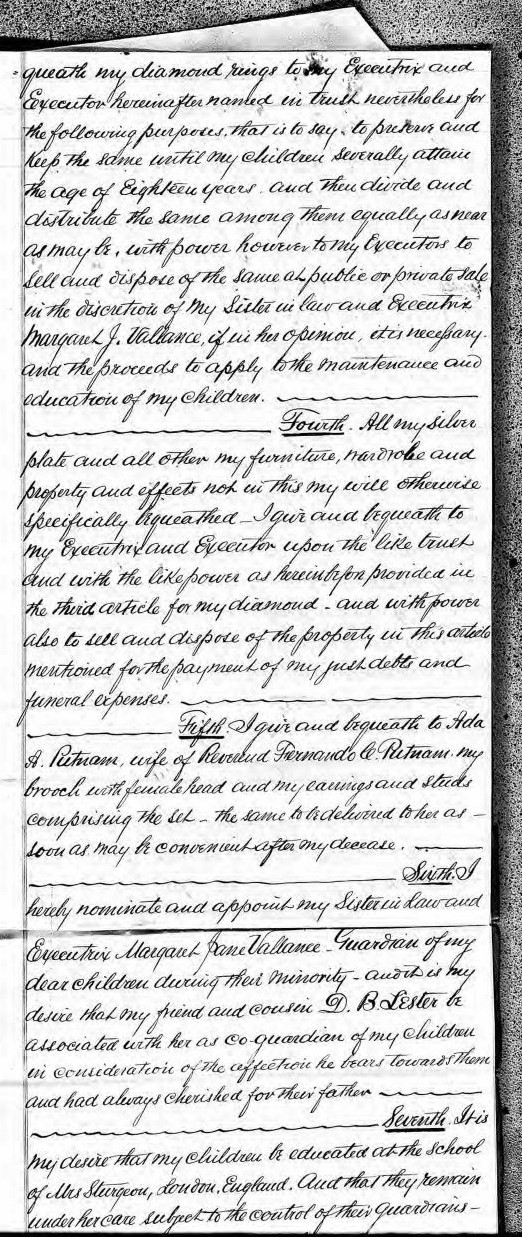 queath my diamond rings to my Executrix and
Executor hereinafter named in trust nevertheless for
the following purposes, that is to say. to preserve and
keep the same until my children severally attain
the age of Eighteen years. and then divide and
distribute the same among them equally as near
as may be, with power however to my Executors to
sell and dispose of the same at public or private sale
in the discretion of my Sister in law and Executrix
Margaret J. Vallance, if in her opinion, it is necessary.
and the proceeds to apply to the maintenance and
education of my children.
Fourth. All my silver
plate and all other my furniture, wardrobe and
property and effects not in this my will otherwise
specifically bequeathed – I give and bequeath to
my Executrix and Executor upon the like trust
and with the like power as hereinbefore provided in
the third article for my diamond – and with power
also to sell and dispose of the property in this article
mentioned for the payment of my just debts and
funeral expenses.
Fifth. I give and bequeath to Ada
A. Putnam, wife of Reverend Fernando C. Putnam. my
brooch with female head and my earrings and studs
comprising the set – the same to be delivered to her as –
soon as may be convenient after my decease.
Sixth. I
hereby nominate and appoint my Sister in Law and
Executrix Margaret Jane Vallance – Guardian of my
dear children during their minority – and it is my
desire that my friend and cousin D. B. Lester be
associated with her as co-guardian of my children
in consideration of the affection he bears towards them
and had always cherished for their father
Seventh. It is
my desire that my children be educated at the school
of Mrs Sturgeon, London, England. And that they remain
under her care subject to the control of their guardians –